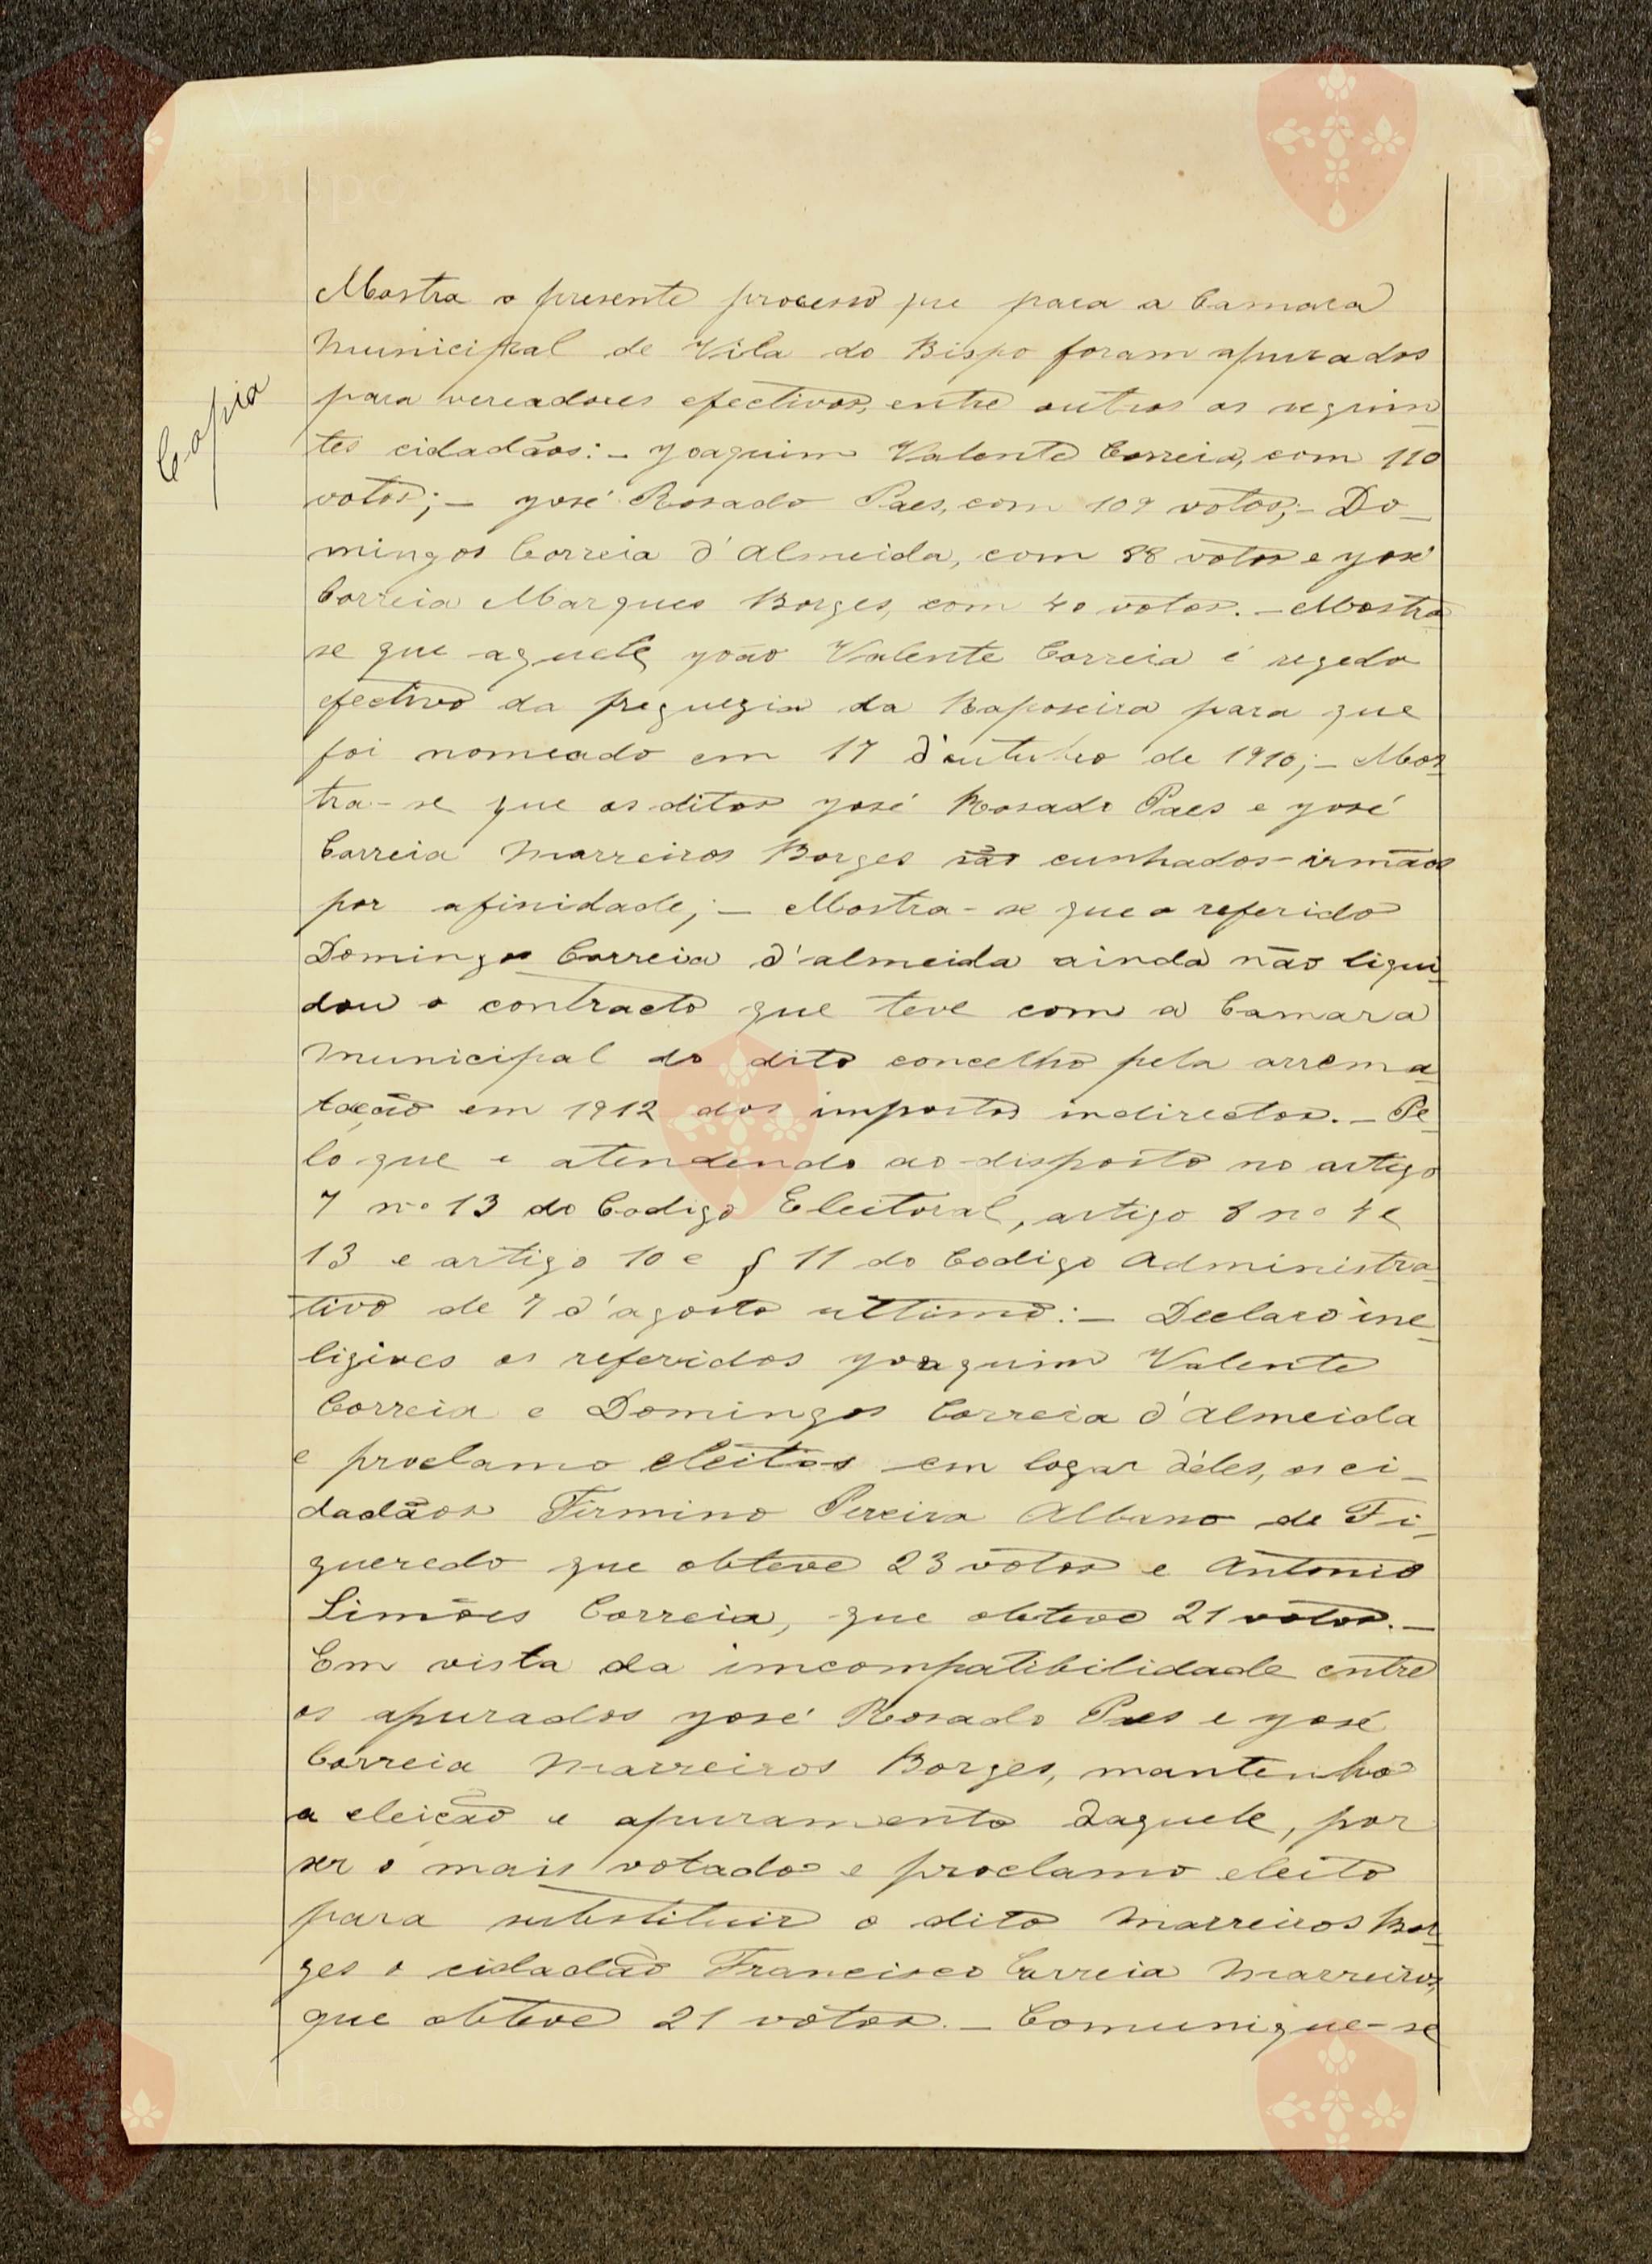 Copia
Mostra o presente processo que para a Camara
Municipal de Vila do Bispo foram apurados
para vereadores efectivos, entre outros os seguin-
tes cidadãos: - Joaquim Valente Correia, com 110
votos; - José Rosado Paes, com 109 votos; - Do-
mingos Correia d'Almeida, com 88 votos e José
Correia Marques Borges, com 40 votos. - Mostra
se que aquele João Valente Correia é regedor
efectivo da freguezia da Raposeira para que
foi nomeado em 17 d'outubro de 1910; - Mos-
tra-se que os ditos José Rosado Paes e José
Correia Marreiros Borges são cunhados-irmãos
por afinidade; - Mostra-se que o referido
Domingos Correia d'almeida ainda não liqui-
dou o contracto que teve com a Camara
Municipal do dito concelho pela arrema-
tação em 1912 dos impostos indirectos. - Pe-
lo que e atendendo ao disposto no artigo
7 nº 13 do Codigo Eleitoral, artigo 8 nº 4 e
13 e artigo 10 e § 11 do Codigo Administra-
tivo de 7 d'agosto ultimo: - Declaro ine-
ligives os referidos Joaquim Valente
Correia e Domingos Correia d'Almeida
e proclamo eleitos em logar dêles, os ci-
dadãos Firmino Pereira Albano de Fi-
gueredo que obteve 23 votos e Antonio
Simões Correia, que obteve 21 votos. -
Em vista da imcompatibilidade entre
os apurados José Rosado Paes e José
Correia Marreiros Borges, mantenho
a eleição e apuramento daquele, por
ser o mais votado e proclamo eleito
para substituir o dito Marreiros Bor-
ges o cidadão Francisco Correia Marreiros,
que obteve 21 votos. - Comunique-se